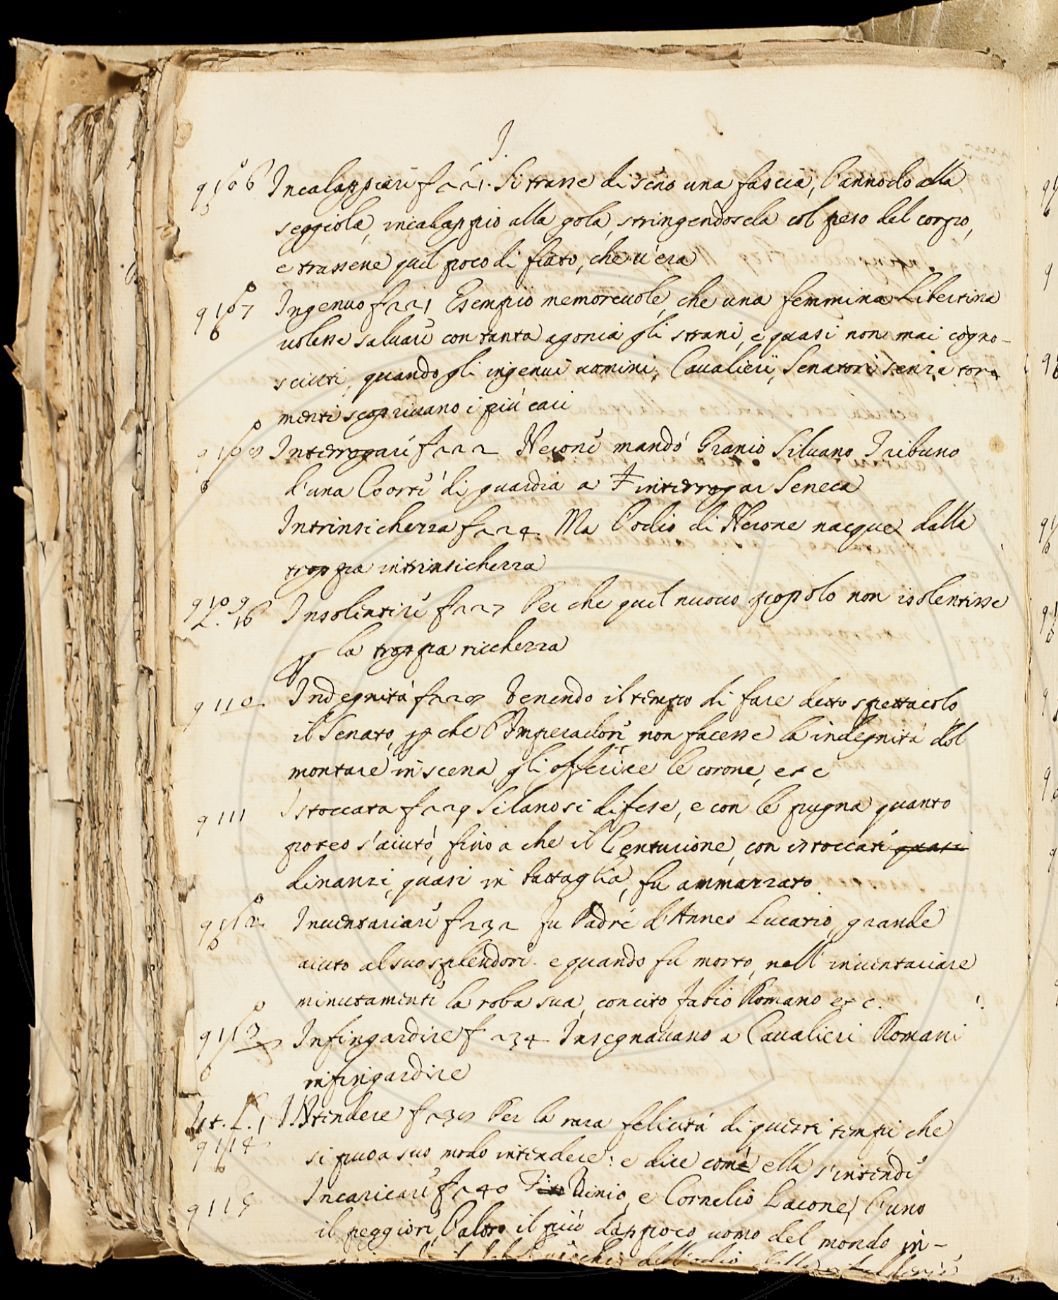 I.
9106 Incalappiare f 221. Si trasse di seno una fascia, l'annodo alla
seggiola, incalappio alla gola, stringendosela col peso del corpo,
e trassene quel poco di fiato, che v'era
9107 Ingenuo f 221 Esempio memorevole, che una femmina Libertina
volesse salvare con tanta agonia gli strani, e quasi non mai cogno-
sciuti, quando gli ingenui uomini, Cavalieri, Senatori senza tor-
menti scoprivano i più cari
9108 Interrogare f 222 Nerone mandò Granio Silvano Tribuno
d'una Coorte di guardia a interrogar Seneca
Intrinsichezza f 224. Ma l'odio di Nerone nacque dalla
troppa intrinsichezza
9109 Insolentire f 227 Per che quel nuovo popolo non isolentisse
L. 16
p la troppa ricchezza
9110 Indegnità f 228 Venendo il tempo di fare detto spettacolo
il Senato, p che l'Imperadore non facesse la indegnità del
montare in scena, gli offerire le corone, et c
9111 Istoccata f 229 Silano si difese, e con le pugna quanto
poteo s'aiutò, fino a che il Centurione, con istoccate quasi
dinanzi, quasi in battaglia, fu ammazzato.
9112 Inventariare f 232 fu Padre d'Anneo Lucano, grande
aiuto al suo splendore. e quando fu morto, nell' inventariare
minutamente la roba sua, concito Fabio Romano et c.
9113 Infingardire f 234 Insegnavano a Cavalieri Romani
infingardire
St. L. 1 Intendere f 238 Per la rara felicità di questi tempi che
9114
si può a suo modo intendere: e dire come ella s'intende
9115 Incaricare f 240 Vinio, e Cornelio Lacone, l'uno
il peggiore, l'altro il più dappoco uomo del mondo in-